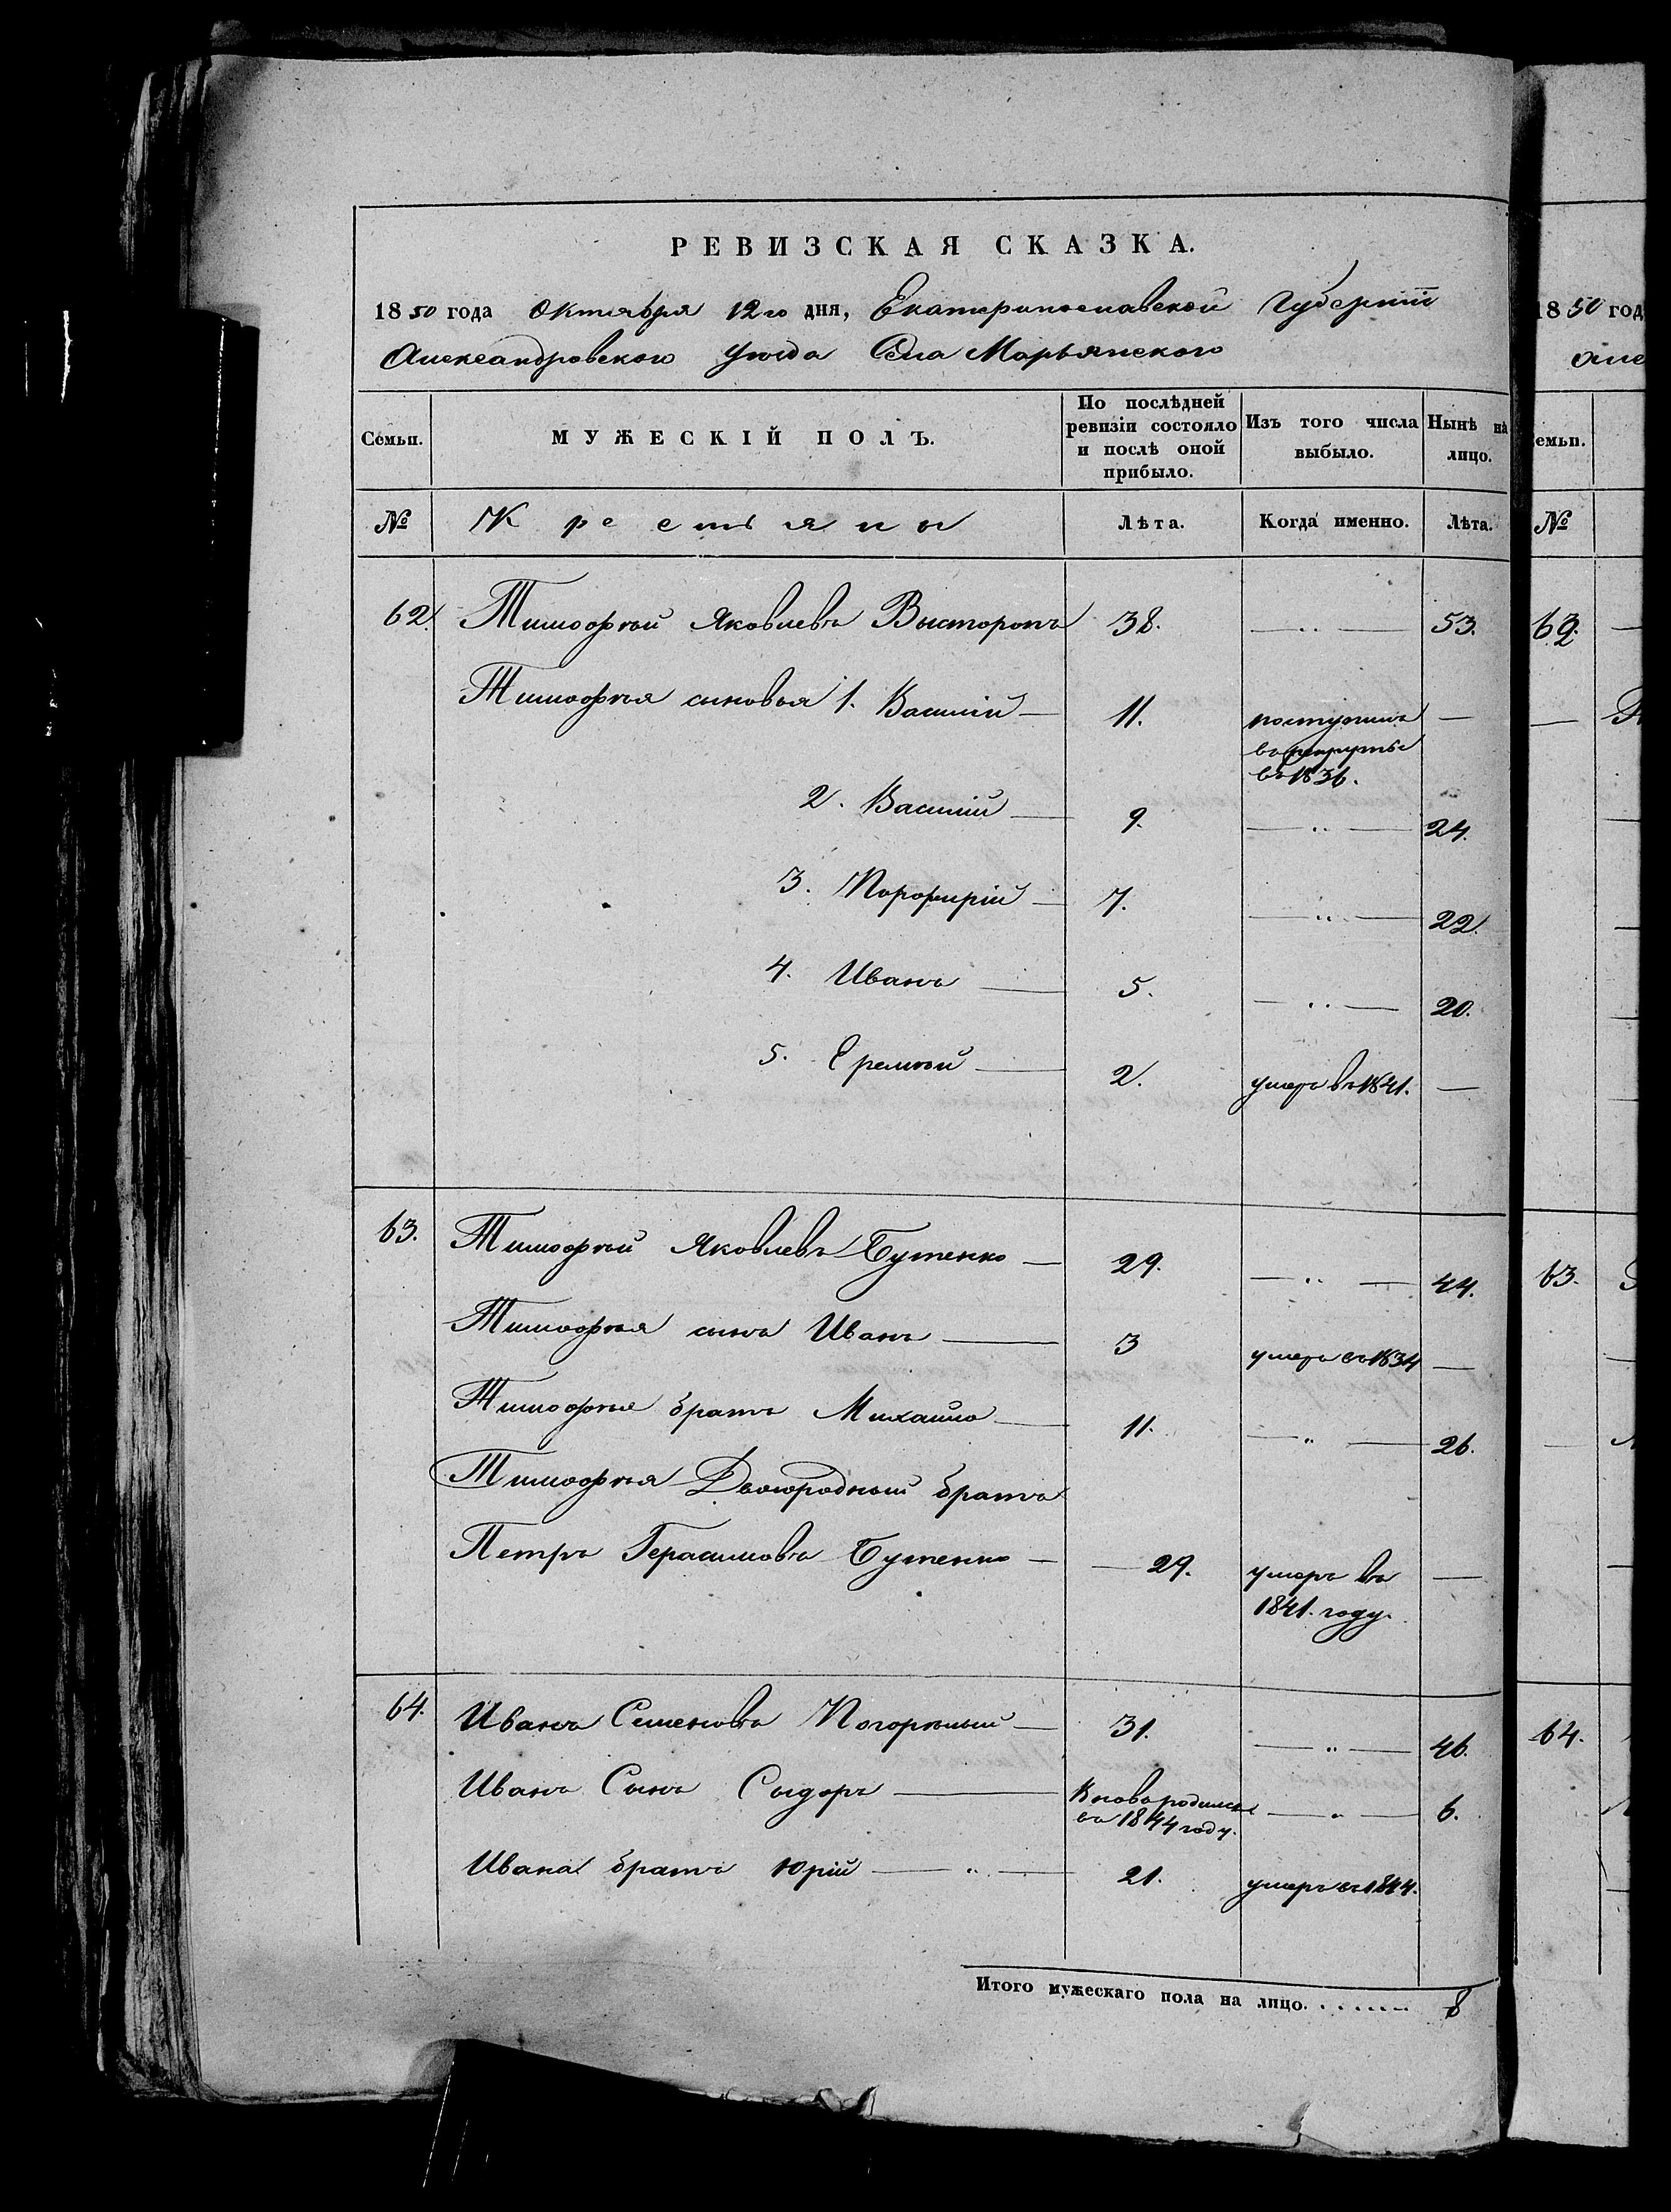 РЕВИЗСКАЯ СКАЗКА.
1850 года Октября 12го дня, Екатеринославской Губерніи
Александровского Уезда Села Марьянского
Семьи.
МУЖЕСКІЙ ПОЛЪ.
По послѣдней ревизіи состояло и послѣ оной прибыло.
Изъ того числа выбыло.
Нынѣ на лицо.
№ Крестьяны Лѣта. Когда именно. Лѣта.
62. Тимофѣй Яковлевъ Высторопъ 38. — „ — 53.
Тимофѣя сыновья 1. Василій — 11. поступилъ —
въ рекруты
въ 1836.
2. Василій — 9. — „ — 24.
3. Порфирій — 7. — „ — 22.
4. Иванъ — 5. — „ — 20.
5. Еремѣй — 2. умеръ въ 1841. —
63. Тимофѣй Яковлевъ Бутенко — 29. — „ — 44.
Тимофѣя сынъ Иванъ — 3 умеръ въ 1834 —
Тимофѣя братъ Михайло — 11. — „ — 26.
Тимофѣя Двоюродный братъ
Петръ Герасимовъ Бутенко — 29. умеръ въ —
1841. году.
64. Иванъ Семеновъ Погорѣлый — 31. — „ — 46.
Иванъ Сынъ Сыдоръ — Вновородился — „ — 6.
въ 1844 году.
Ивана братъ Юрій — „ — 21. умеръ въ 1844.
Итого мужескаго пола на лицо. . . . . . . 8
1850 год
але
Семьи.
№
62.
63.
64.